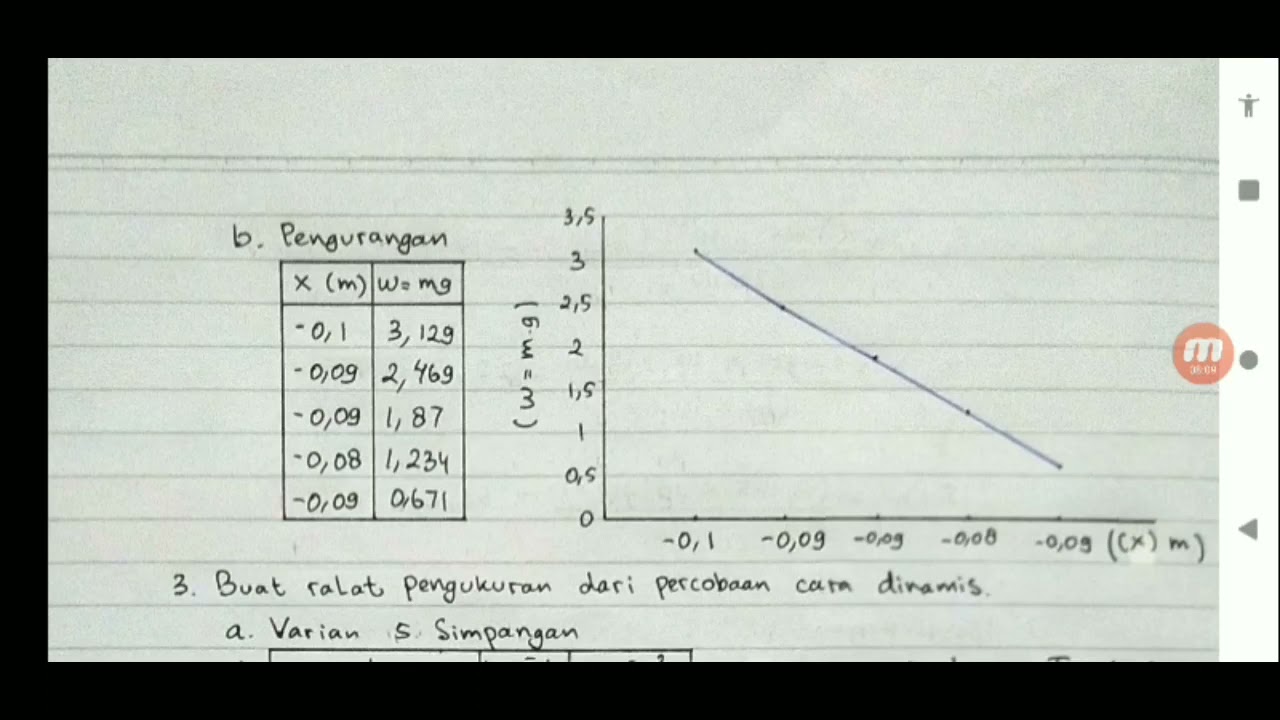 b. Pengurangan
x (m) w = mg
-0,1 3,129
-0,09 2,469
-0,09 1,87
-0,08 1,234
-0,09 0,671
3,5
3
2,5
2
1,5
1
0,5
0
(w = m.g)
-0,1 -0,09 -0,09 -0,08 -0,09 ((x) m)
3. Buat ralat pengukuran dari percobaan cara dinamis.
a. Varian S. Simpangan
08:09